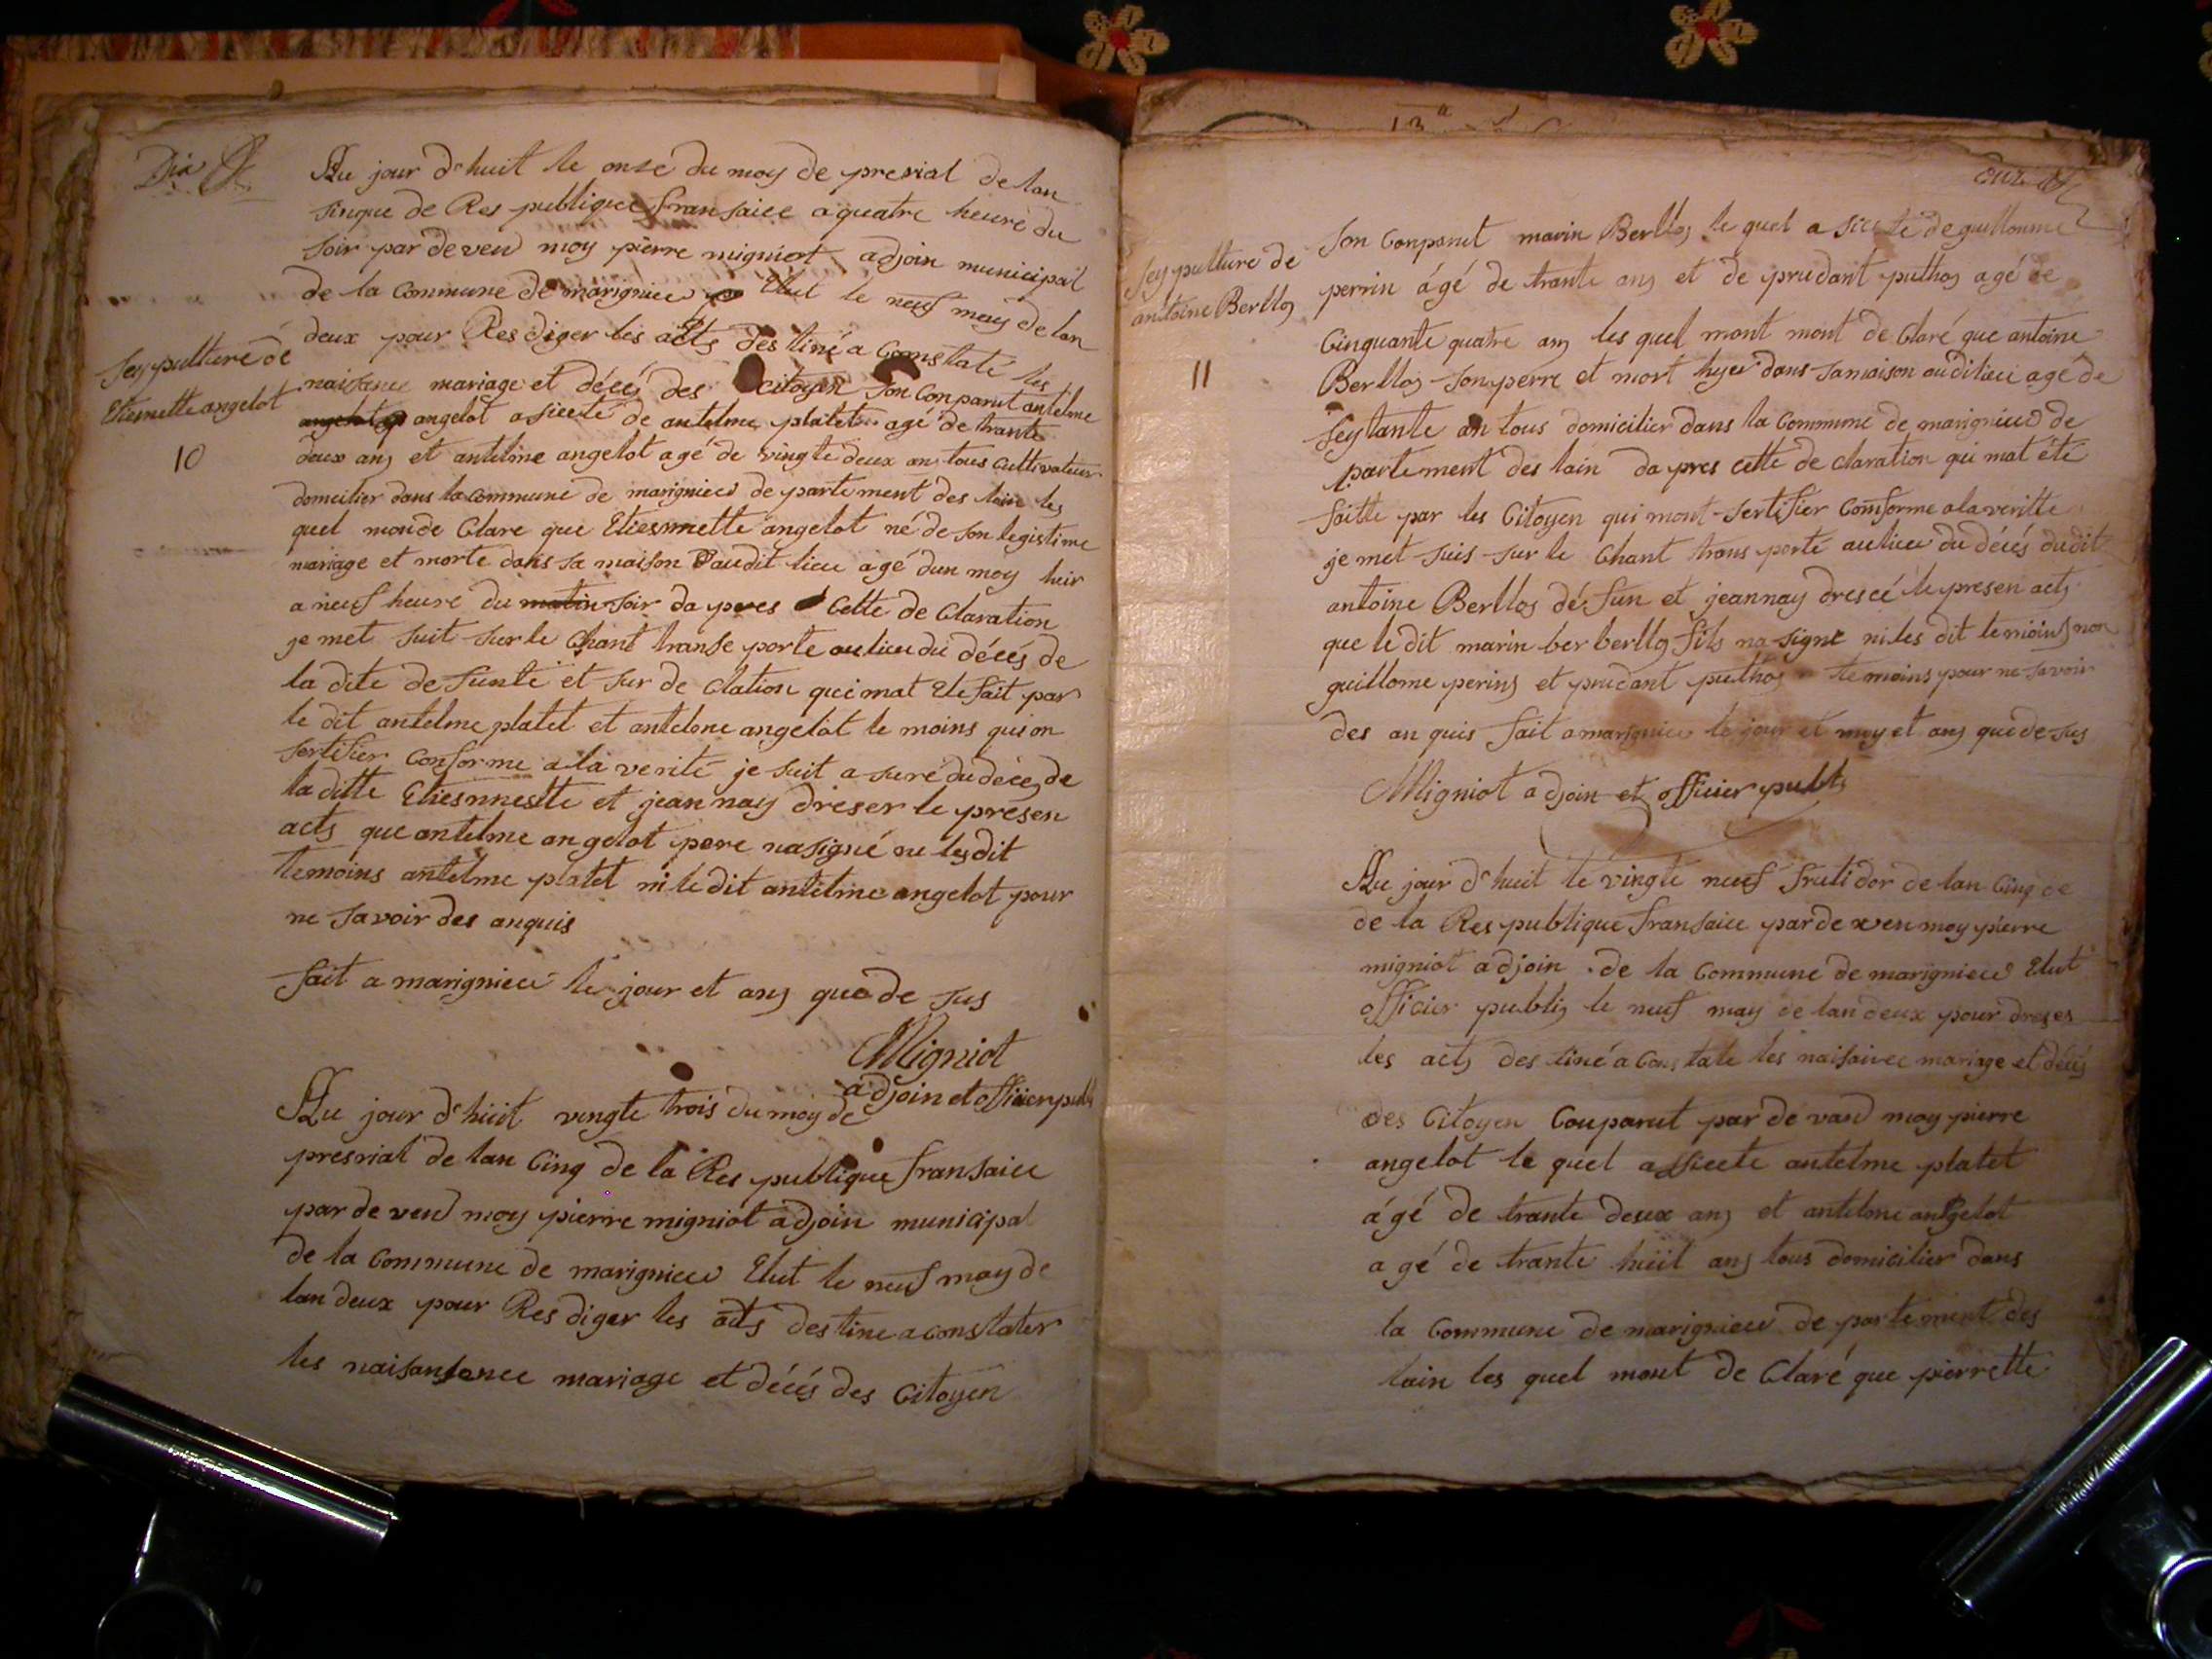 Dix
Au jour d'huit le onse du moy de presial de lan
sinque de Res publique fransaice a quatre heure du
soir par deven moy pierre migniot adjoin municipal
de la Commune de marignieu Elut le neuf may de lan
deux pour Resdiger les acts destiné a Constaté les
Seypulture de
Etiennette angelot
10
naissance mariage et décés des citoyen son Conparut antelme
angelot asiceté de antelme platet agé de trante
deux ans et antelme angelot agé de vingte deux ans tous Cultivateur
domcilier dans la Commune de marignieu de partement des lain les
quel mon de Clare que Etiesnnette angelot né de son legistime
mariage et morte dans sa maison audit lieu agé dun moy heir
a neuf heure du matin soir da pres Cette de Claration
je met suit sur le Chant transe porte au lieu du décés de
la dite de funte et sur de Clation qui mat Ete fait par
le dit antelme platet et antelme angelot te moins quion
sertifier Conforme a la verité je suit a suré du décés de
la ditte Etiesnnestte et jean nay dreser le presen
acts que antelme angelot pere na signé ne les dit
temoins antelme platet ni lé dit antelme angelot pour
ne savoir des anquis
fait a marignieu le jour et ans que de sus
Migniot
adjoin et officier publ
Au jour d'huit vingte trois du moy de
presrial de lan Cinq de la Res publique fransaice
par de ven moy pierre migniot adjoin municipal
de la Commune de marignieu Elut le neuf may de
lan deux pour Resdiger les acts destine a constater
les naisansance mariage et décés des Citoyen
Seypulture de
antoine Berllos
11
son Conparut marin Berllos le quel a siceté de guillonme
perrin ágé de trante ans et de prudant puthos agé de
Cinquante quatre ans les quel mont mont de Claré que antoine
Berllos son perre et mort hyer dans sa maison audi lieu agé de
seytante an tous domicilier dans la Commune de marignieu de
partement des lain da pres cette de claration qui mat été
faitte par les Citoyen qui mont sertifier Comforme a la veritte
je met suis sur le Chant trans porté au lieu du décés du dit
antoine Berllos défun et jeannay drescé le presen acts
que le dit marin ber berllos fils na signe ni les dit temoins non
guillome perins et prudant puthos temoins pour ne savoir
des an quis fait a marignieu le jour et moy et ans que de sus
Migniot adjoin et officier publs
Au jour d'huit le vingte neuf frutidor de lan Cinq de
de la Res publique fransaice par de ven moy pierre
migniot adjoin de la Commune de marignieu Elut
officier publis le neuf may de lan deux pour dreses
les acts destiné a Constate les naisaivee mariage et décés
des Citoyen Conparut par de vand moy pierre
angelot le quel assicete antelme platet
ágé de trante deux ans et antelme angelot
agé de trante huit ans tous domicilier dans
la Commune de marignieu de partement des
lain les quel mont de Claré que pierrette